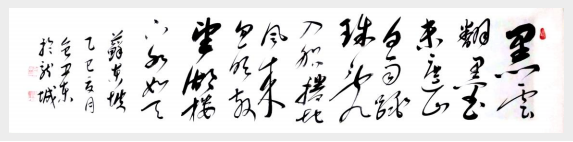 黑雲
翻墨
未遮山
白雨跳
珠亂
入船捲地
風來
忽吹散
望湖樓
下水如天
蘇東坡
乙巳夏月
於龍城